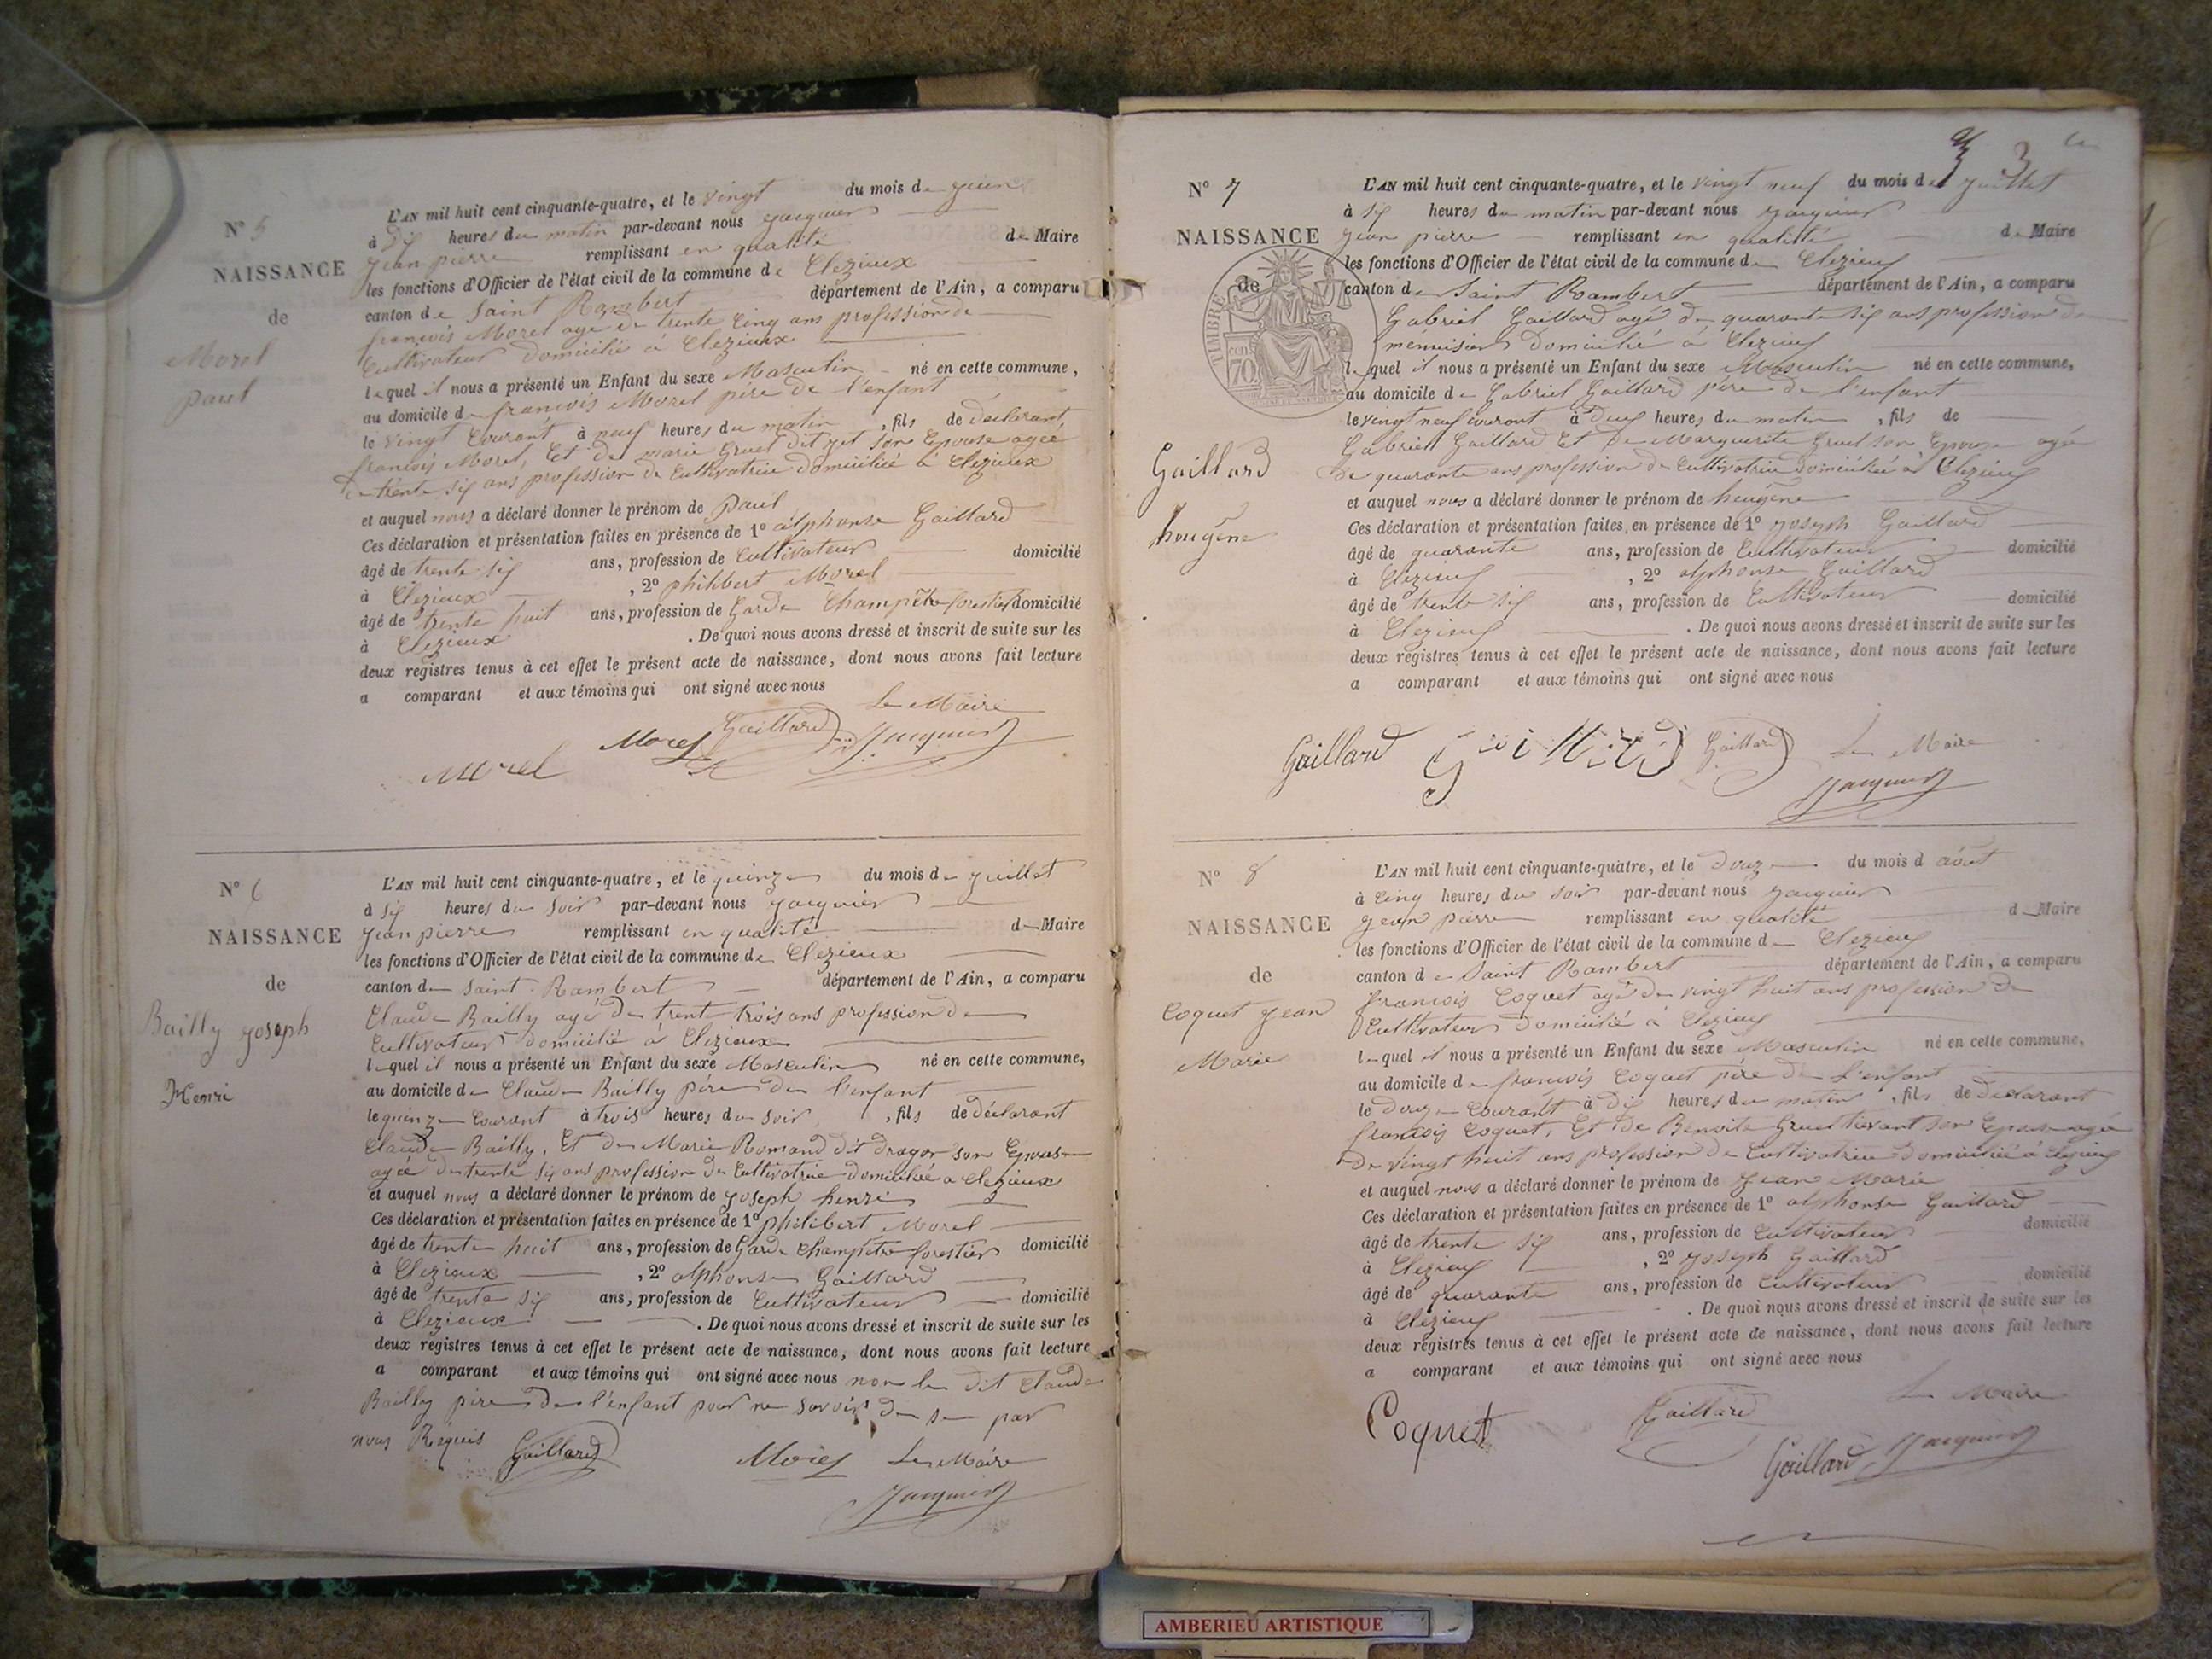 N° 5
NAISSANCE
de
Morel
paul
L'AN mil huit cent cinquante-quatre, et le vingt du mois de juin
à dix heures du matin par-devant nous jacquier
jean pierre remplissant en qualité de Maire
les fonctions d'Officier de l'état civil de la commune de Clezieux
canton de Saint Rambert département de l'Ain, a comparu
françois Morel agé de trente cinq ans profession de
Cultivateur domicilié à Clezieux
lequel il nous a présenté un Enfant du sexe Masculin né en cette commune,
au domicile de françois Morel père de l'enfant
le vingt Courant à neuf heures du matin, fils de declarant
françois Morel, Et de marie Gruel dit son Epouse agée
de trente six ans profession de Cultivatrice domiciliée à Clezieux
et auquel nous a déclaré donner le prénom de paul
Ces déclaration et présentation faites en présence de 1° alphonse Gaillard
âgé de trente six ans, profession de Cultivateur domicilié
à Clezieux, 2° philibert Morel
âgé de trente huit ans, profession de Garde Champêtre forestier domicilié
à Clezieux. De quoi nous avons dressé et inscrit de suite sur les
deux registres tenus à cet effet le présent acte de naissance, dont nous avons fait lecture
a comparant et aux témoins qui ont signé avec nous
Le Maire
Morel Gaillard Jacquier
Morel
N° 6
NAISSANCE
de
Bailly joseph
Henri
L'AN mil huit cent cinquante-quatre, et le quinze du mois de juillet
à six heures du soir par-devant nous jacquier
jean pierre remplissant en qualité de Maire
les fonctions d'Officier de l'état civil de la commune de Clezieux
canton de Saint Rambert département de l'Ain, a comparu
Claude Bailly agé de trente trois ans profession de
Cultivateur domicilié à Clezieux
lequel il nous a présenté un Enfant du sexe Masculin né en cette commune,
au domicile de Claude Bailly père de l'enfant
le quinze Courant à trois heures du soir, fils de déclarant
Claude Bailly, Et de Marie Romand dit dragon son Epouse
agée de trente six ans profession de Cultivatrice domiciliée a Clezieux
et auquel nous a déclaré donner le prénom de joseph henri
Ces déclaration et présentation faites en présence de 1° philibert Morel
âgé de trente huit ans, profession de Garde Champêtre forestier domicilié
à Clezieux, 2° alphonse Gaillard
âgé de trente six ans, profession de Cultivateur domicilié
à Clezieux. De quoi nous avons dressé et inscrit de suite sur les
deux registres tenus à cet effet le présent acte de naissance, dont nous avons fait lecture
a comparant et aux témoins qui ont signé avec nous non le dit Claude
Bailly père de l'enfant pour ne savoir de se par
nous Requis Gaillard Morel Le Maire
Jacquier
3
N° 7
NAISSANCE
de
TIMBRE
70
Gaillard
heugène
L'AN mil huit cent cinquante-quatre, et le vingt neuf du mois de juillet
à six heures du matin par-devant nous jacquier
jean pierre remplissant en qualité de Maire
les fonctions d'Officier de l'état civil de la commune de Clezieux
canton de Saint Rambert département de l'Ain, a comparu
Gabriel Gaillard agé de quarante six ans profession de
menuisier domicilié à Clezieux
lequel il nous a présenté un Enfant du sexe Masculin né en cette commune,
au domicile de Gabriel Gaillard père de l'enfant
le vingt neuf courant à deux heures du matin, fils de
Gabriel Gaillard Et de Marguerite Gruel son Epouse agée
de quarante ans profession de Cultivatrice domiciliée à Clezieux
et auquel nous a déclaré donner le prénom de heugène
Ces déclaration et présentation faites en présence de 1° joseph Gaillard
âgé de quarante ans, profession de Cultivateur domicilié
à Clezieux, 2° alphonse Gaillard
âgé de trente six ans, profession de Cultivateur domicilié
à Clezieux. De quoi nous avons dressé et inscrit de suite sur les
deux registres tenus à cet effet le présent acte de naissance, dont nous avons fait lecture
a comparant et aux témoins qui ont signé avec nous
Gaillard Gaillard Gaillard Le Maire
Jacquier
N° 8
NAISSANCE
de
Coquet jean
Marie
L'AN mil huit cent cinquante-quatre, et le douze du mois d août
à cinq heures du soir par-devant nous jacquier
jean pierre remplissant en qualité de Maire
les fonctions d'Officier de l'état civil de la commune de Clezieux
canton de Saint Rambert département de l'Ain, a comparu
françois Coquet agé de vingt huit ans profession de
Cultivateur domicilié à Clezieux
lequel il nous a présenté un Enfant du sexe Masculin né en cette commune,
au domicile de françois Coquet père de l'enfant
le douze Courant à dix heures du matin, fils de declarant
françois Coquet, Et de Benoite Gruel son Epouse agée
de vingt huit ans profession de Cultivatrice domiciliée à Clezieux
et auquel nous a déclaré donner le prénom de Jean Marie
Ces déclaration et présentation faites en présence de 1° alphonse Gaillard
âgé de trente six ans, profession de Cultivateur domicilié
à Clezieux, 2° joseph Gaillard
âgé de quarante ans, profession de Cultivateur domicilié
à Clezieux. De quoi nous avons dressé et inscrit de suite sur les
deux registres tenus à cet effet le présent acte de naissance, dont nous avons fait lecture
a comparant et aux témoins qui ont signé avec nous
Coquet Gaillard Le Maire
Gaillard Jacquier
AMBERIEU ARTISTIQUE